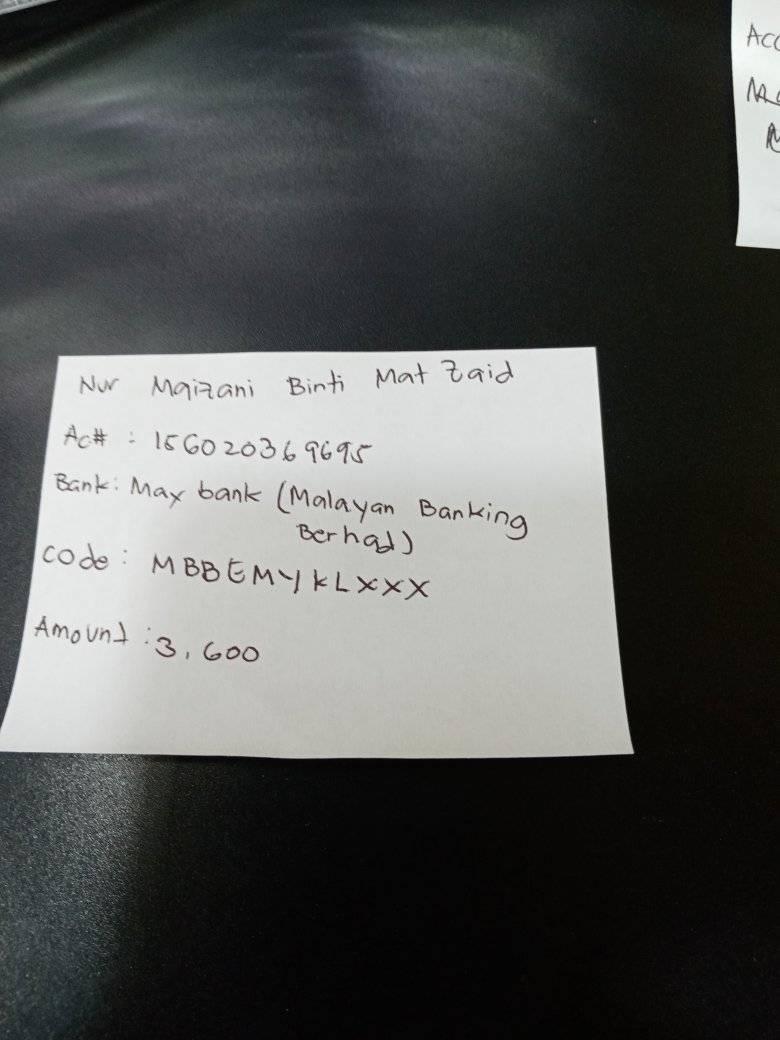 Nur Maizani Binti Mat Zaid
Ac# : 156020369695
Bank: Max bank (Malayan Banking
Berhad)
code : MBBEMYKLXXX
Amount : 3,600
Acc